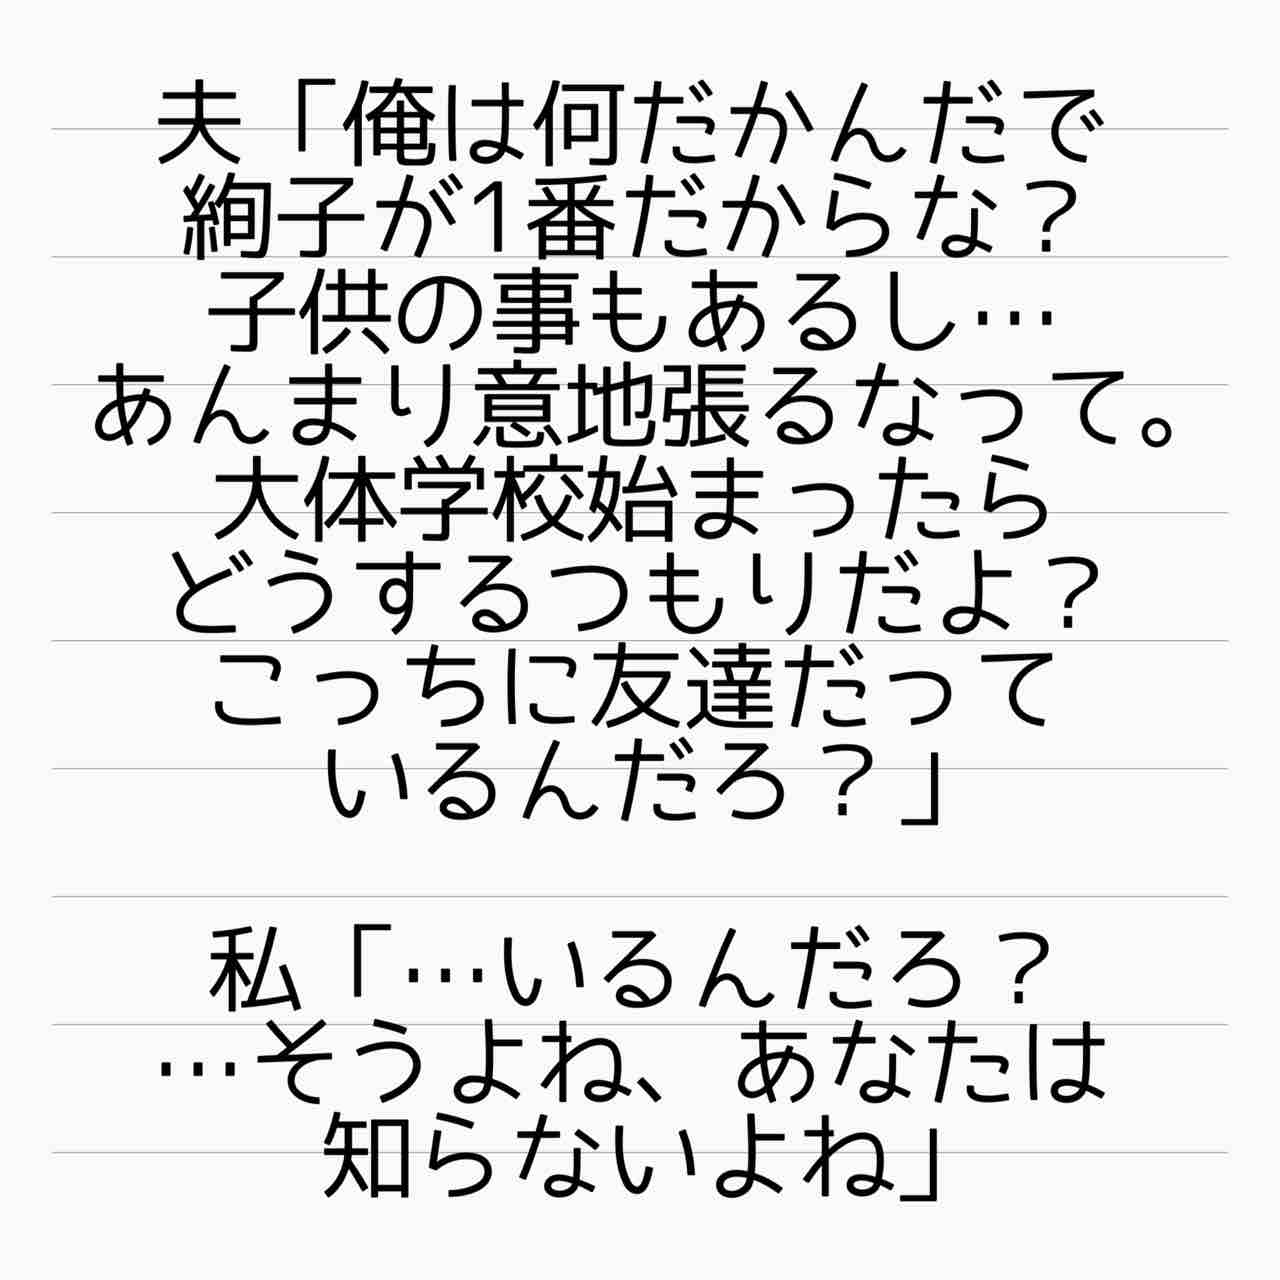 夫「俺は何だかんだで
絢子が1番だからな？
子供の事もあるし…
あんまり意地張るなって。
大体学校始まったら
どうするつもりだよ？
こっちに友達だって
いるんだろ？」
私「…いるんだろ？
…そうよね、あなたは
知らないよね」